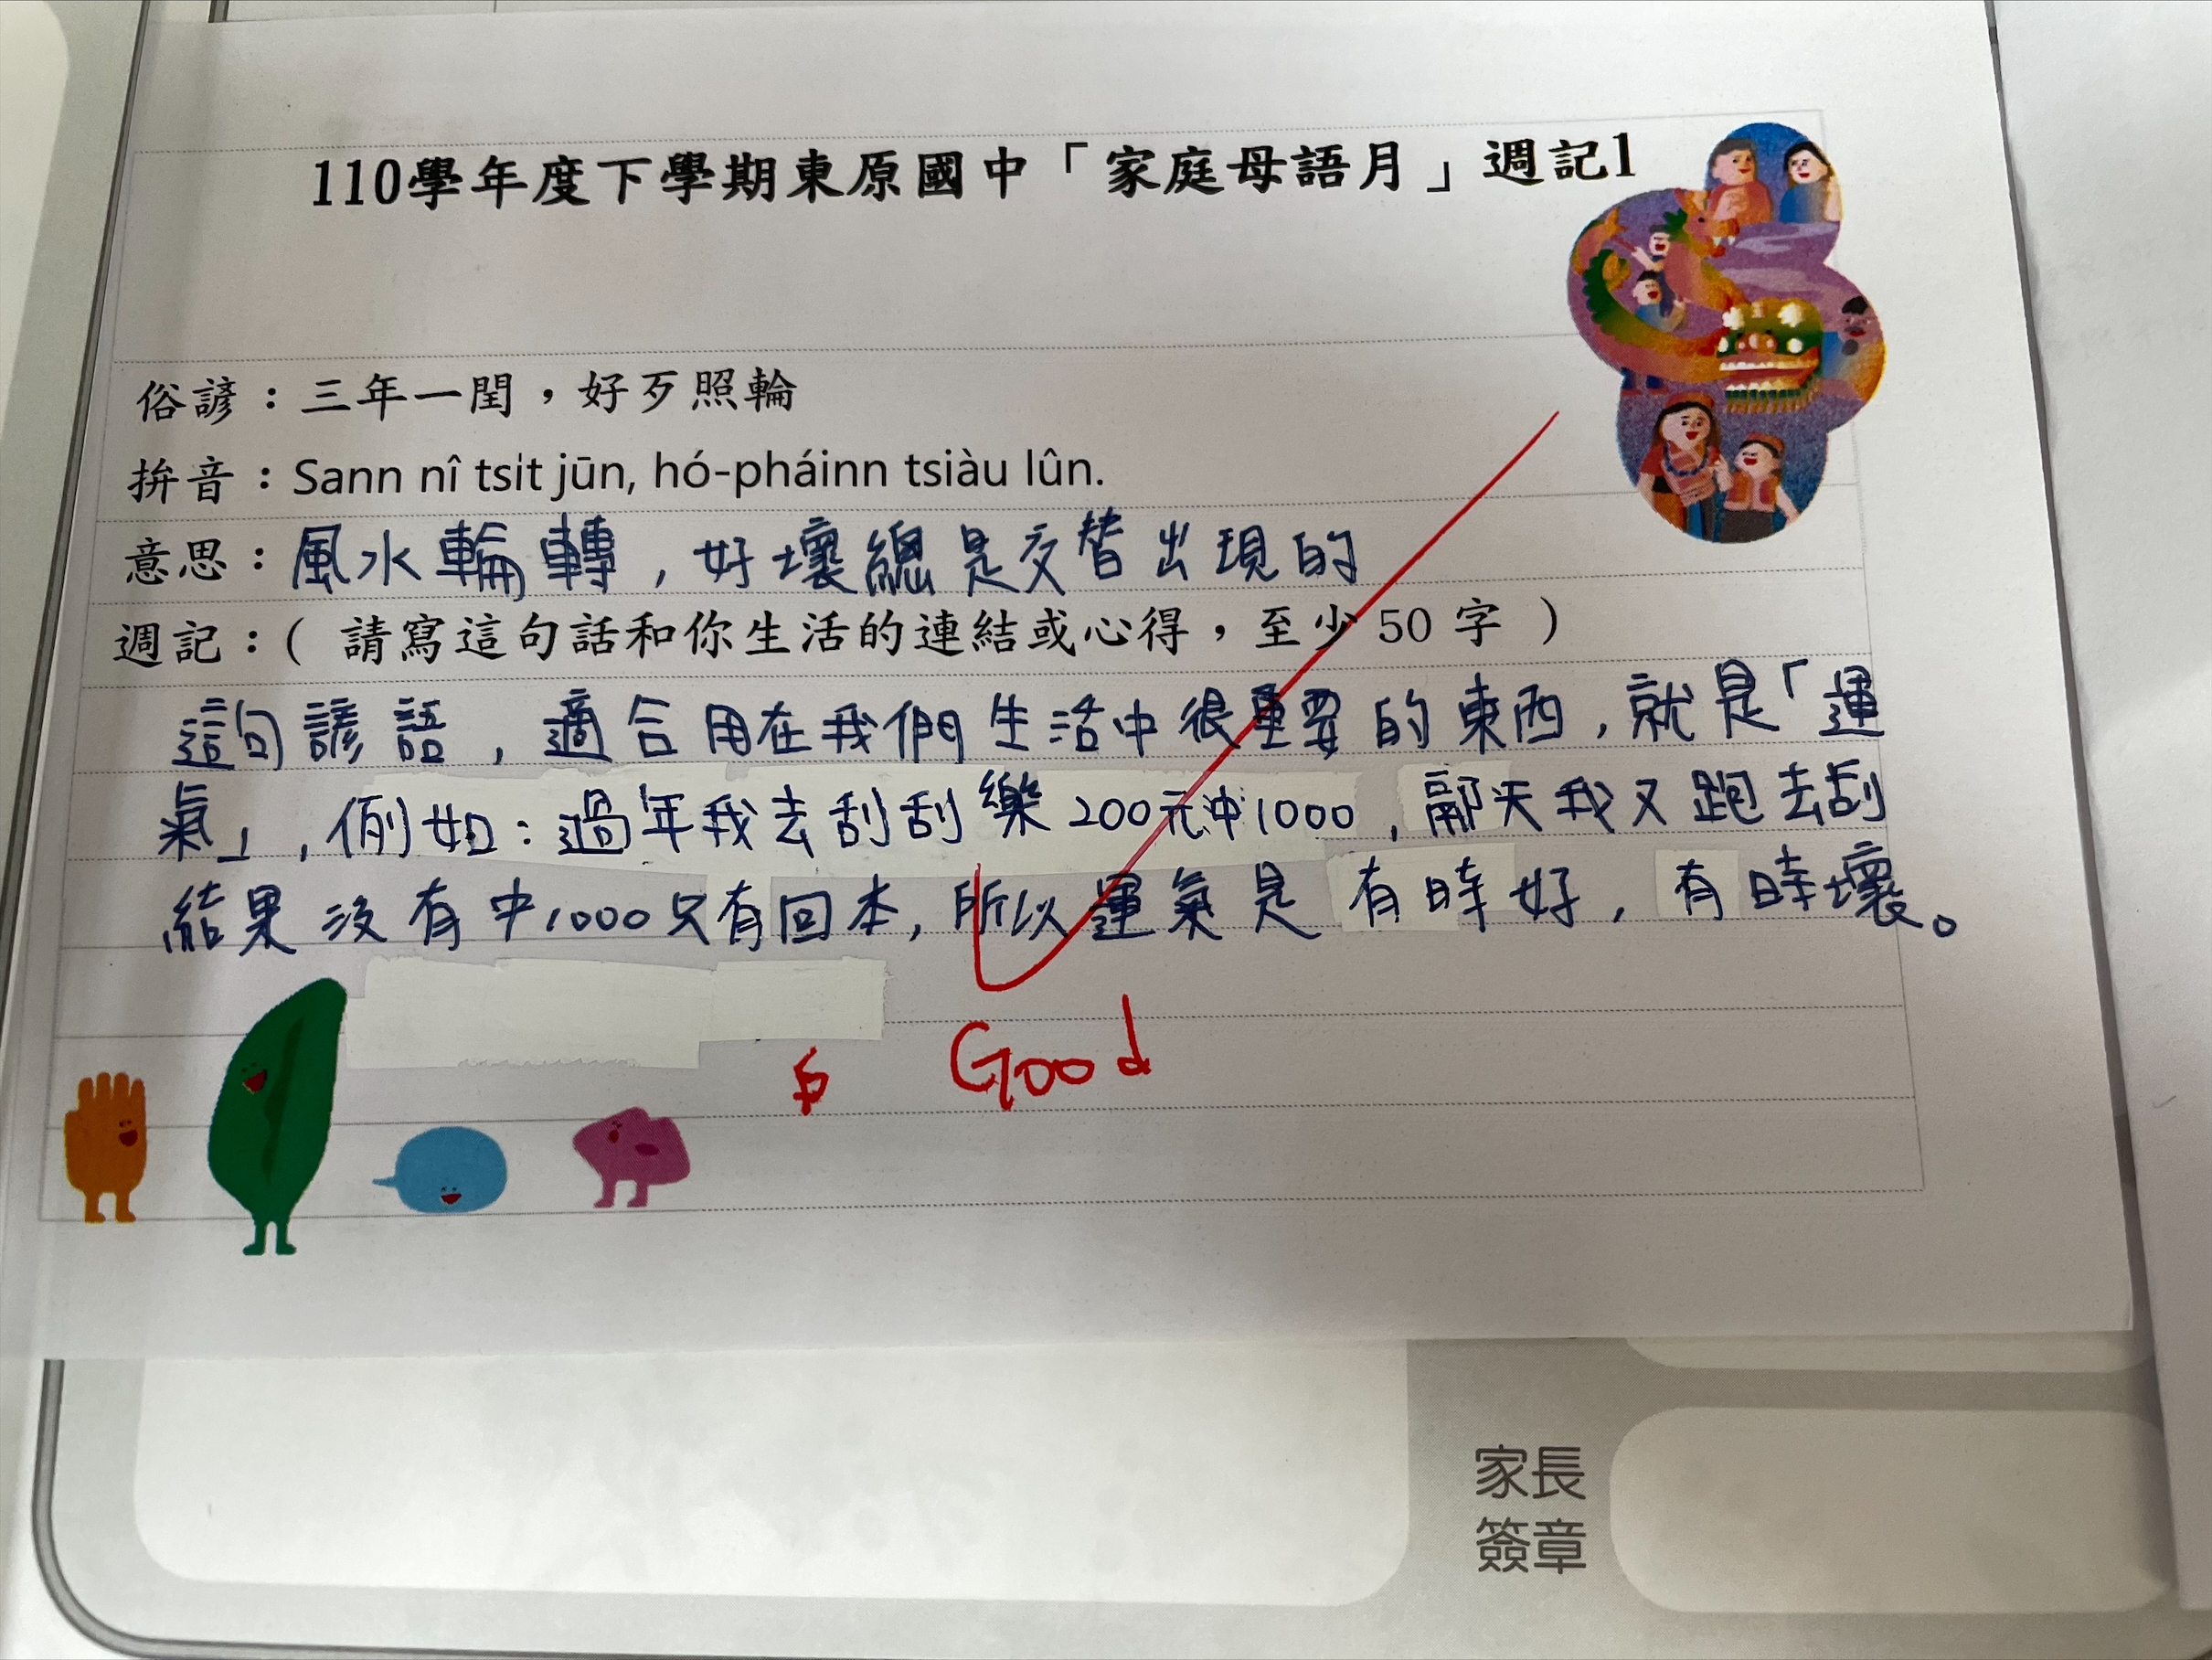 110學年度下學期東原國中「家庭母語月」週記1
俗諺：三年一閏，好歹照輪
拚音：Sann nî tsi̍t jūn, hó-pháinn tsiàu lûn.
意思：風水輪轉，好壞總是交替出現的
週記：( 請寫這句話和你生活的連結或心得，至少 50 字 )
這句諺語，適合用在我們生活中很重要的東西，就是「運
氣」，例如：過年我去刮刮樂200元中1000，鄰天我又跑去刮
結果沒有中1000只有回本，所以運氣是有時好，有時壞。
Good
家長
簽章